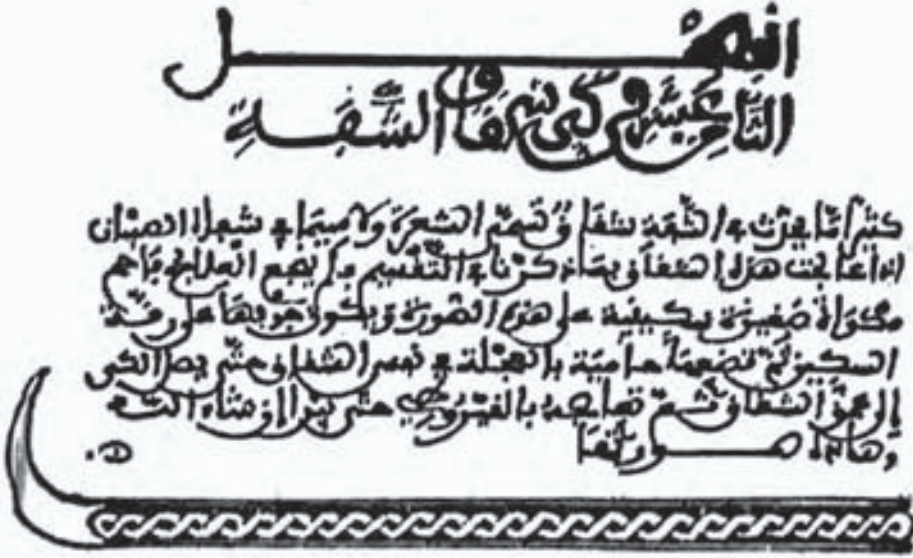 الفصل
الثامن عشر في كي شقاق الشفة
كثيرا ما يحدث في الشفة شقاق تسمى الشعرة ولا سيما في شفاه الصبيان
اذا عالجت هذا الشقاق بما ذكرنا في التقسيم ولم ينجع العلاج فاحم
مكواة صغيرة سكينية على هذه الصورة ويكون حرفها على رقة
السكين ثم تضعها حامية بالعجلة في نفس الشقاق حتى يصل الكي
إلى عمق الشقاق ثم تعالجه بالقيروطي حتى يبرا إن شاء الله
وهاذه صورتها